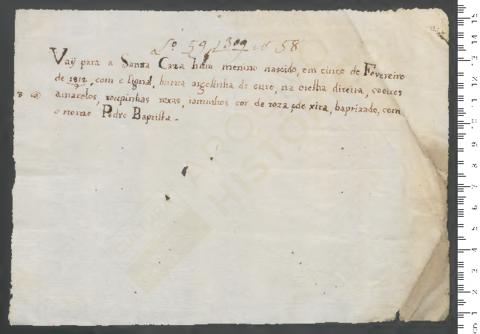 Lo 59 f 309 nº 58
Vaÿ para a Santa Caza hum menino nascido, em cinco de Fevereiro
de 1812, com o signal, huma argolinha de ouro, na orelha direita, coeiros
amarelos, roupinhas roxas, raminhos cor de roza, de xita, baptizado, com
o nome Pedro Baptista.